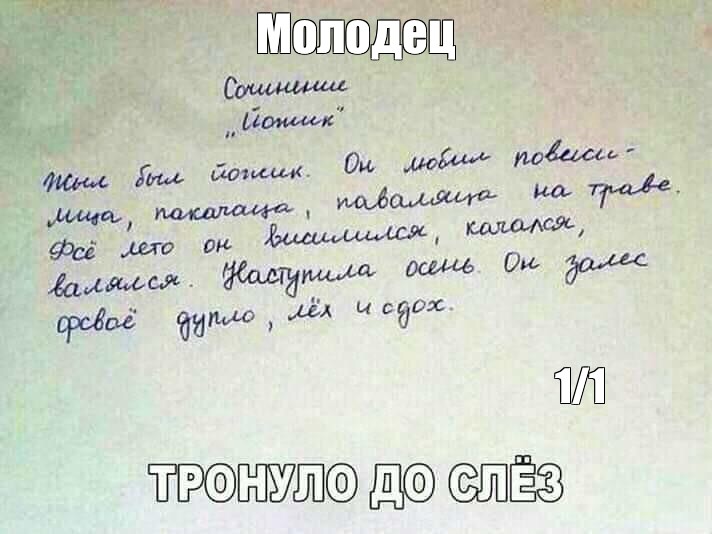 Молодец
Сочинение
„Йожик"
Жыл был йожик. Он любил повесили-
лица, пакачаца, паваляца на траве.
Фсё лето он висилился, качался,
валялся. Наступила осень. Он залес
фсваё дупло, лёх и сдох.
1/1
ТРОНУЛО ДО СЛЁЗ